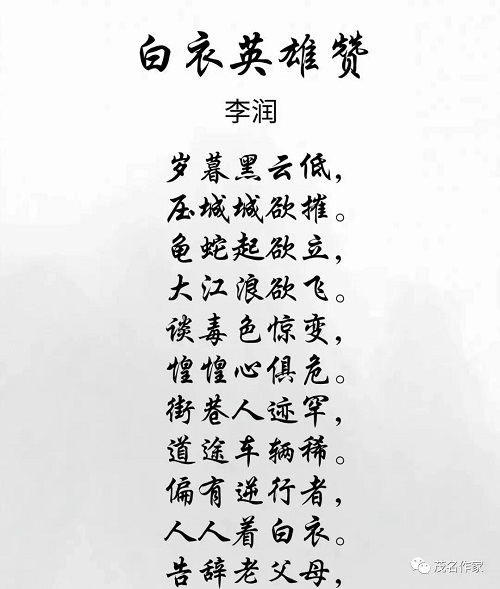 白衣英雄赞
李润
岁暮黑云低，
压城城欲摧。
龟蛇起欲立，
大江浪欲飞。
谈毒色惊变，
惶惶心俱危。
街巷人迹罕，
道途车辆稀。
偏有逆行者，
人人着白衣。
告辞老父母，
茂名作家